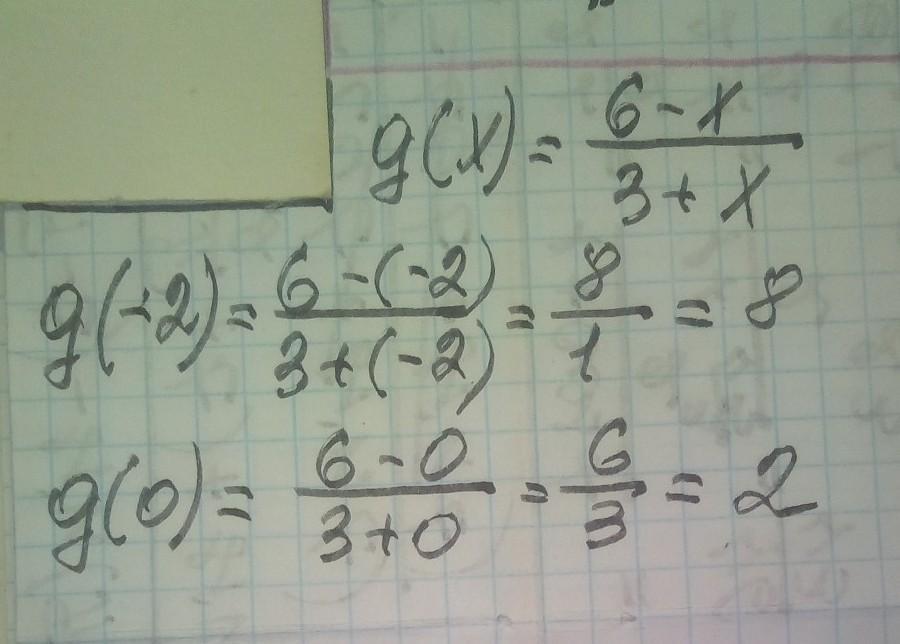 g(x) = \frac{6-x}{3+x}
g(-2) = \frac{6-(-2)}{3+(-2)} = \frac{8}{1} = 8
g(0) = \frac{6-0}{3+0} = \frac{6}{3} = 2